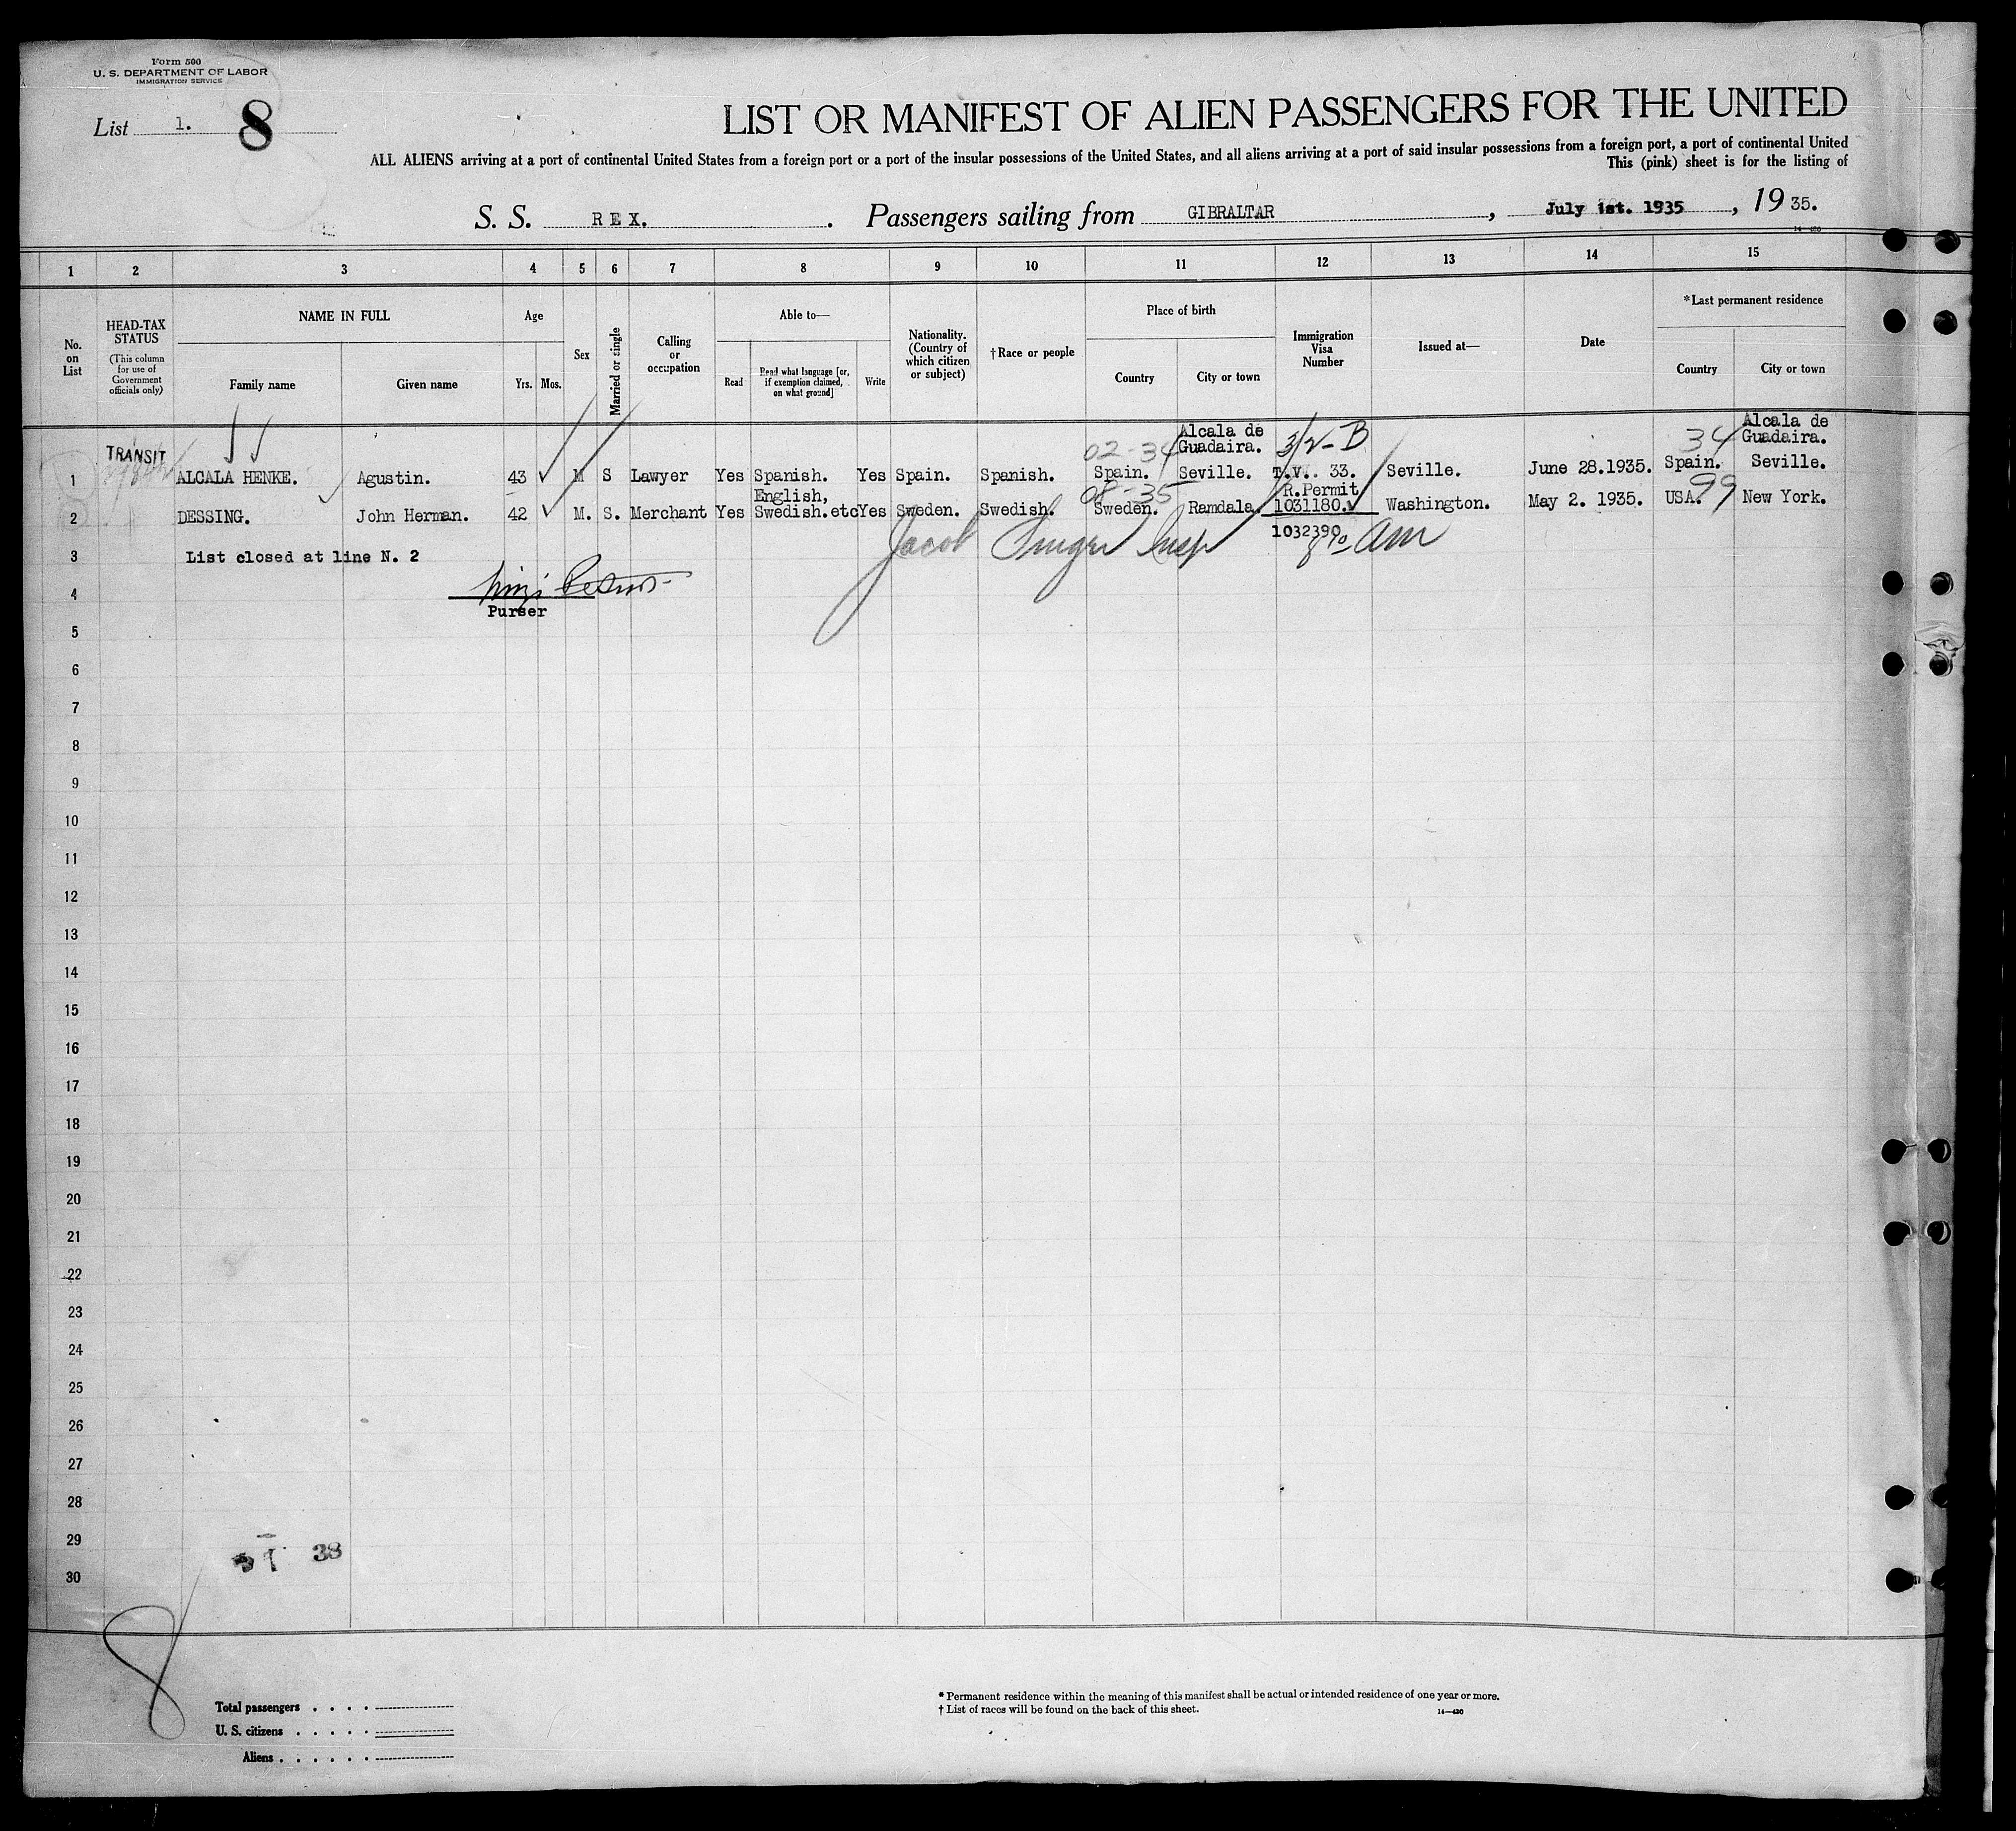 Form 500
U. S. DEPARTMENT OF LABOR
IMMIGRATION SERVICE
List 1. 8
LIST OR MANIFEST OF ALIEN PASSENGERS FOR THE UNITED
ALL ALIENS arriving at a port of continental United States from a foreign port or a port of the insular possessions of the United States, and all aliens arriving at a port of said insular possessions from a foreign port, a port of continental United
This (pink) sheet is for the listing of
S. S. REX. . Passengers sailing from GIBRALTAR , July 1st. 1935 , 19 35.
14—430
1 2 3 4 5 6 7 8 9 10 11 12 13 14 15
No. on List
HEAD-TAX STATUS
(This column for use of Government officials only)
NAME IN FULL
Family name
Given name
Age
Yrs. Mos.
Sex
Married or single
Calling or occupation
Able to—
Read
Read what language [or, if exemption claimed, on what ground]
Write
Nationality. (Country of which citizen or subject)
†Race or people
Place of birth
Country
City or town
Immigration Visa Number
Issued at—
Date
*Last permanent residence
Country
City or town
TRANSIT
02-34 Alcala de Guadaira. 3/2-B 34 Alcala de Guadaira.
1 ALCALA HENKE. Agustin. 43 M S Lawyer Yes Spanish. Yes Spain. Spanish. Spain. Seville. T.V. 33. Seville. June 28.1935. Spain. Seville.
English, 08-35 R.Permit 99
2 DESSING. John Herman. 42 M. S. Merchant Yes Swedish.etc Yes Sweden. Swedish. Sweden. Ramdala. 1031180. Washington. May 2. 1935. USA. New York.
1032390
3 List closed at line N. 2
Jacob Insp
4
Purser
5
6
7
8
9
10
11
12
13
14
15
16
17
18
19
20
21
22
23
24
25
26
27
28
29
38
30
8
Total passengers . . . .
U. S. citizens . . . . .
Aliens . . . . . .
* Permanent residence within the meaning of this manifest shall be actual or intended residence of one year or more.
† List of races will be found on the back of this sheet.
14—430